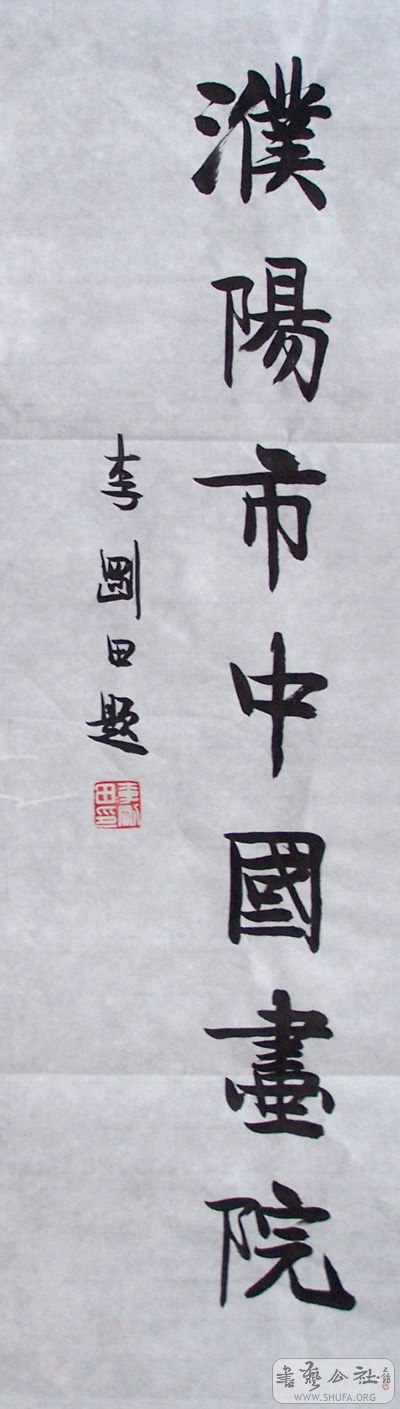 濮陽市中國畫院
李剛田題
李剛田印
書藝公社
WWW.SHUFA.ORG